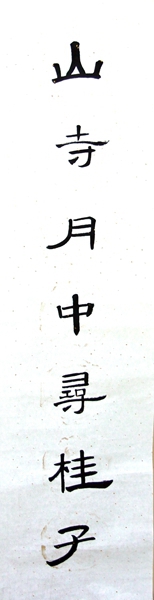 山寺月中尋桂子